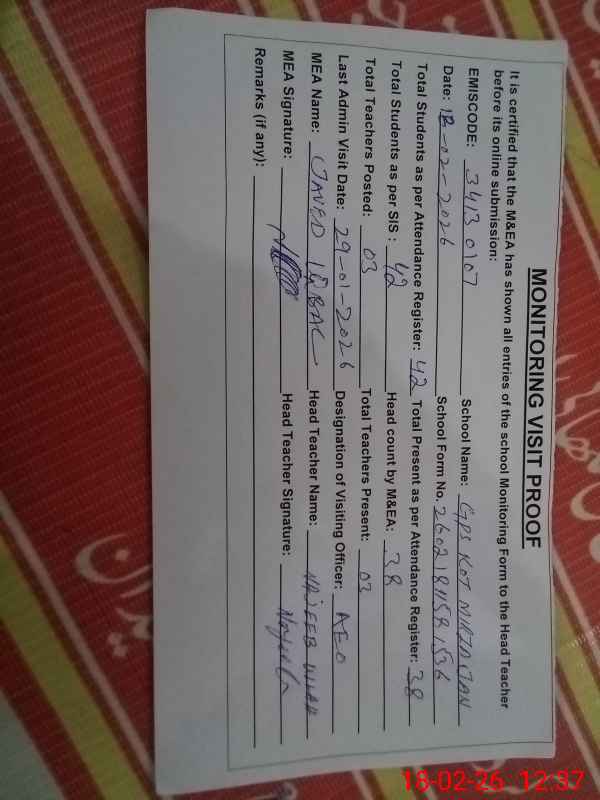 MONITORING VISIT PROOF
It is certified that the M&EA has shown all entries of the school Monitoring Form to the Head Teacher
before its online submission:
EMISCODE: 34130107 School Name: GPS KOT MIRZA JAN
Date: 18-02-2026 School Form No. 26021811581536
Total Students as per Attendance Register: 42 Total Present as per Attendance Register: 38
Total Students as per SIS : 42 Head count by M&EA: 38
Total Teachers Posted: 03 Total Teachers Present: 03
Last Admin Visit Date: 29-01-2026 Designation of Visiting Officer: AEO
MEA Name: JAVED IQBAL Head Teacher Name: NAJEEB ULLAH
MEA Signature: Head Teacher Signature: Najeeb
Remarks (if any):
18-02-26 12:37